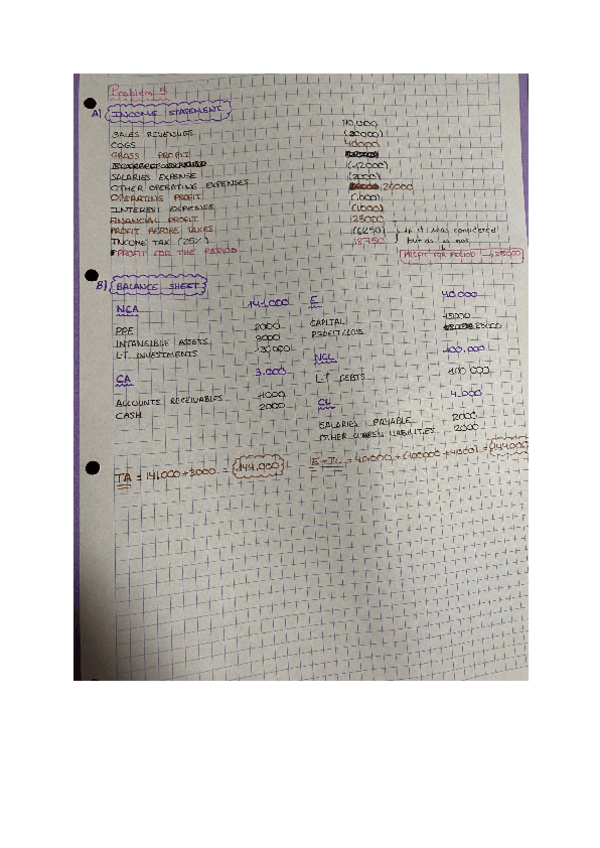 Problem 5
A) INCOME STATEMENT
SALES REVENUES 70,000
COGS (30000)
GROSS PROFIT 40000
SALARIES EXPENSE (-12000)
OTHER OPERATING EXPENSES (2000)
OPERATING PROFIT 26000
INTEREST EXPENSE (1000)
FINANCIAL PROFIT (1000)
PROFIT BEFORE TAXES 25000
INCOME TAX (25%) (6250) if it was considered
PROFIT FOR THE PERIOD 18750 but as is not
PROFIT FOR PERIOD → 25000
B) BALANCE SHEET
NCA 141.000 E 40.000
PPE CAPITAL 15000
INTANGIBLE ASSETS 9000 PROFIT/LOSS 25000
L.T. INVESTMENTS NCL 100.000
CA 3.000 L.T DEBTS 100 000
ACCOUNTS RECEIVABLES 1000 CL 4.000
CASH 2000 SALARIES PAYABLE 2000
OTHER LIABILITIES 2000
TA = 141.000 + 3000 = 144.000 E + TL = 40.000 + (100.000 + 4000) = 144.000